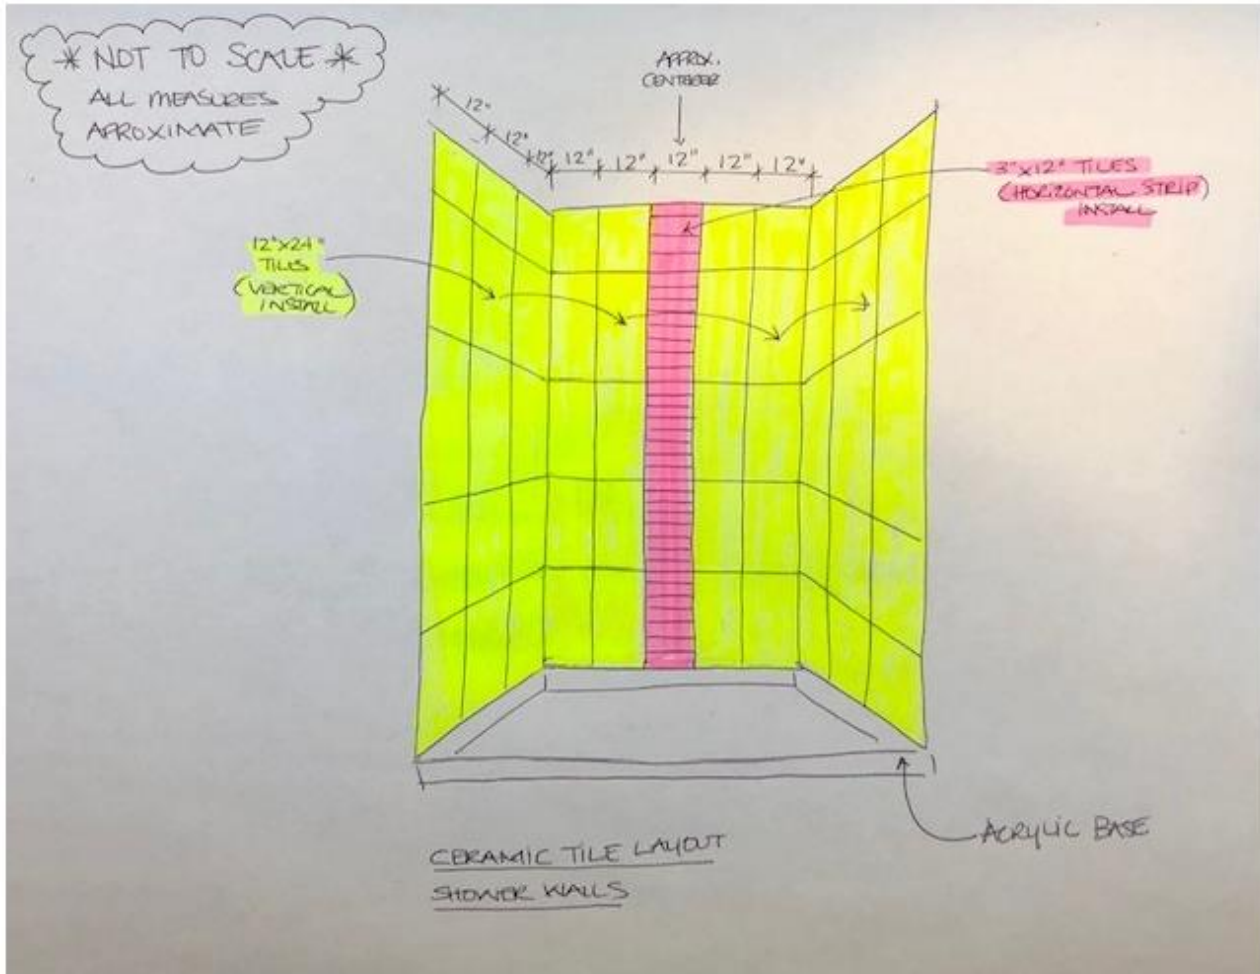 * NOT TO SCALE *
ALL MEASURES
APROXIMATE
APPROX.
CENTERED
12"
12"
12"
12"
12"
12"
12"
12"
3"x12" TILES
(HORIZONTAL STRIP)
INSTALL
12"x24"
TILES
(VERTICAL
INSTALL)
ACRYLIC BASE
CERAMIC TILE LAYOUT
SHOWER WALLS